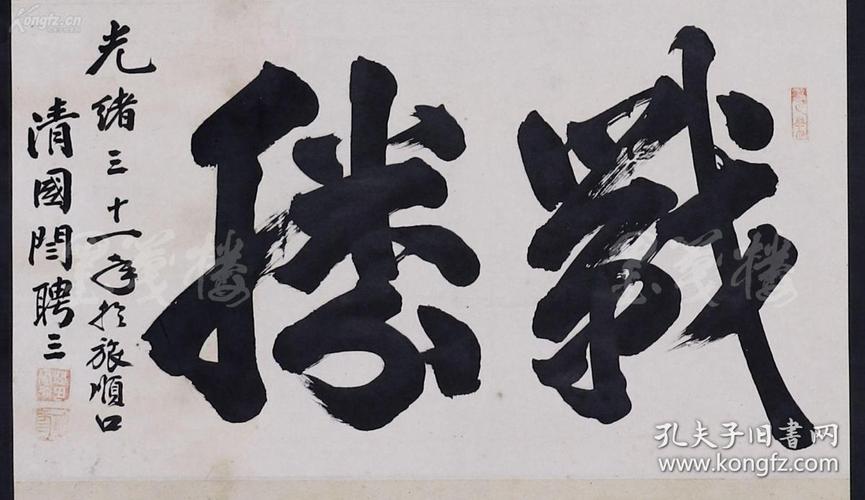 戰勝
光緒三十一年於旅順口
清國閆聘三
Kongfz.cn
孔夫子旧書网
www.kongfz.com